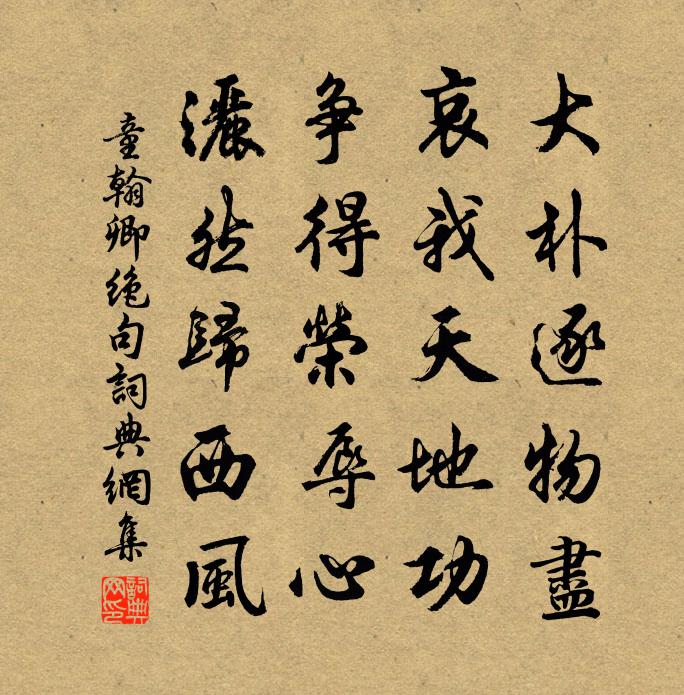 大朴逐物盡
哀我天地功
争得榮辱心
灑然歸西風
童翰卿絶句詞典網集
詞典網印